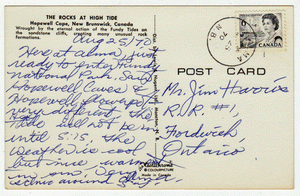 THE ROCKS AT HIGH TIDE
Hopewell Cape, New Brunswick, Canada
Wrought by the eternal action of the Fundy Tides on
the sandstone cliffs, creating many unusual rock
formations.
Aug 25/70
Here at Alma, just
ready to enter Fundy
National Park. Saw
Hopewell Caves &
Hopewell
very different. The
tide will not be in
until 5:30. The
weather is cool
but nice & warm
in sun. Very
scenic around
POST CARD
CANADA
Mr. Jim Harris
R.R. #1,
Fordwich
Ontario